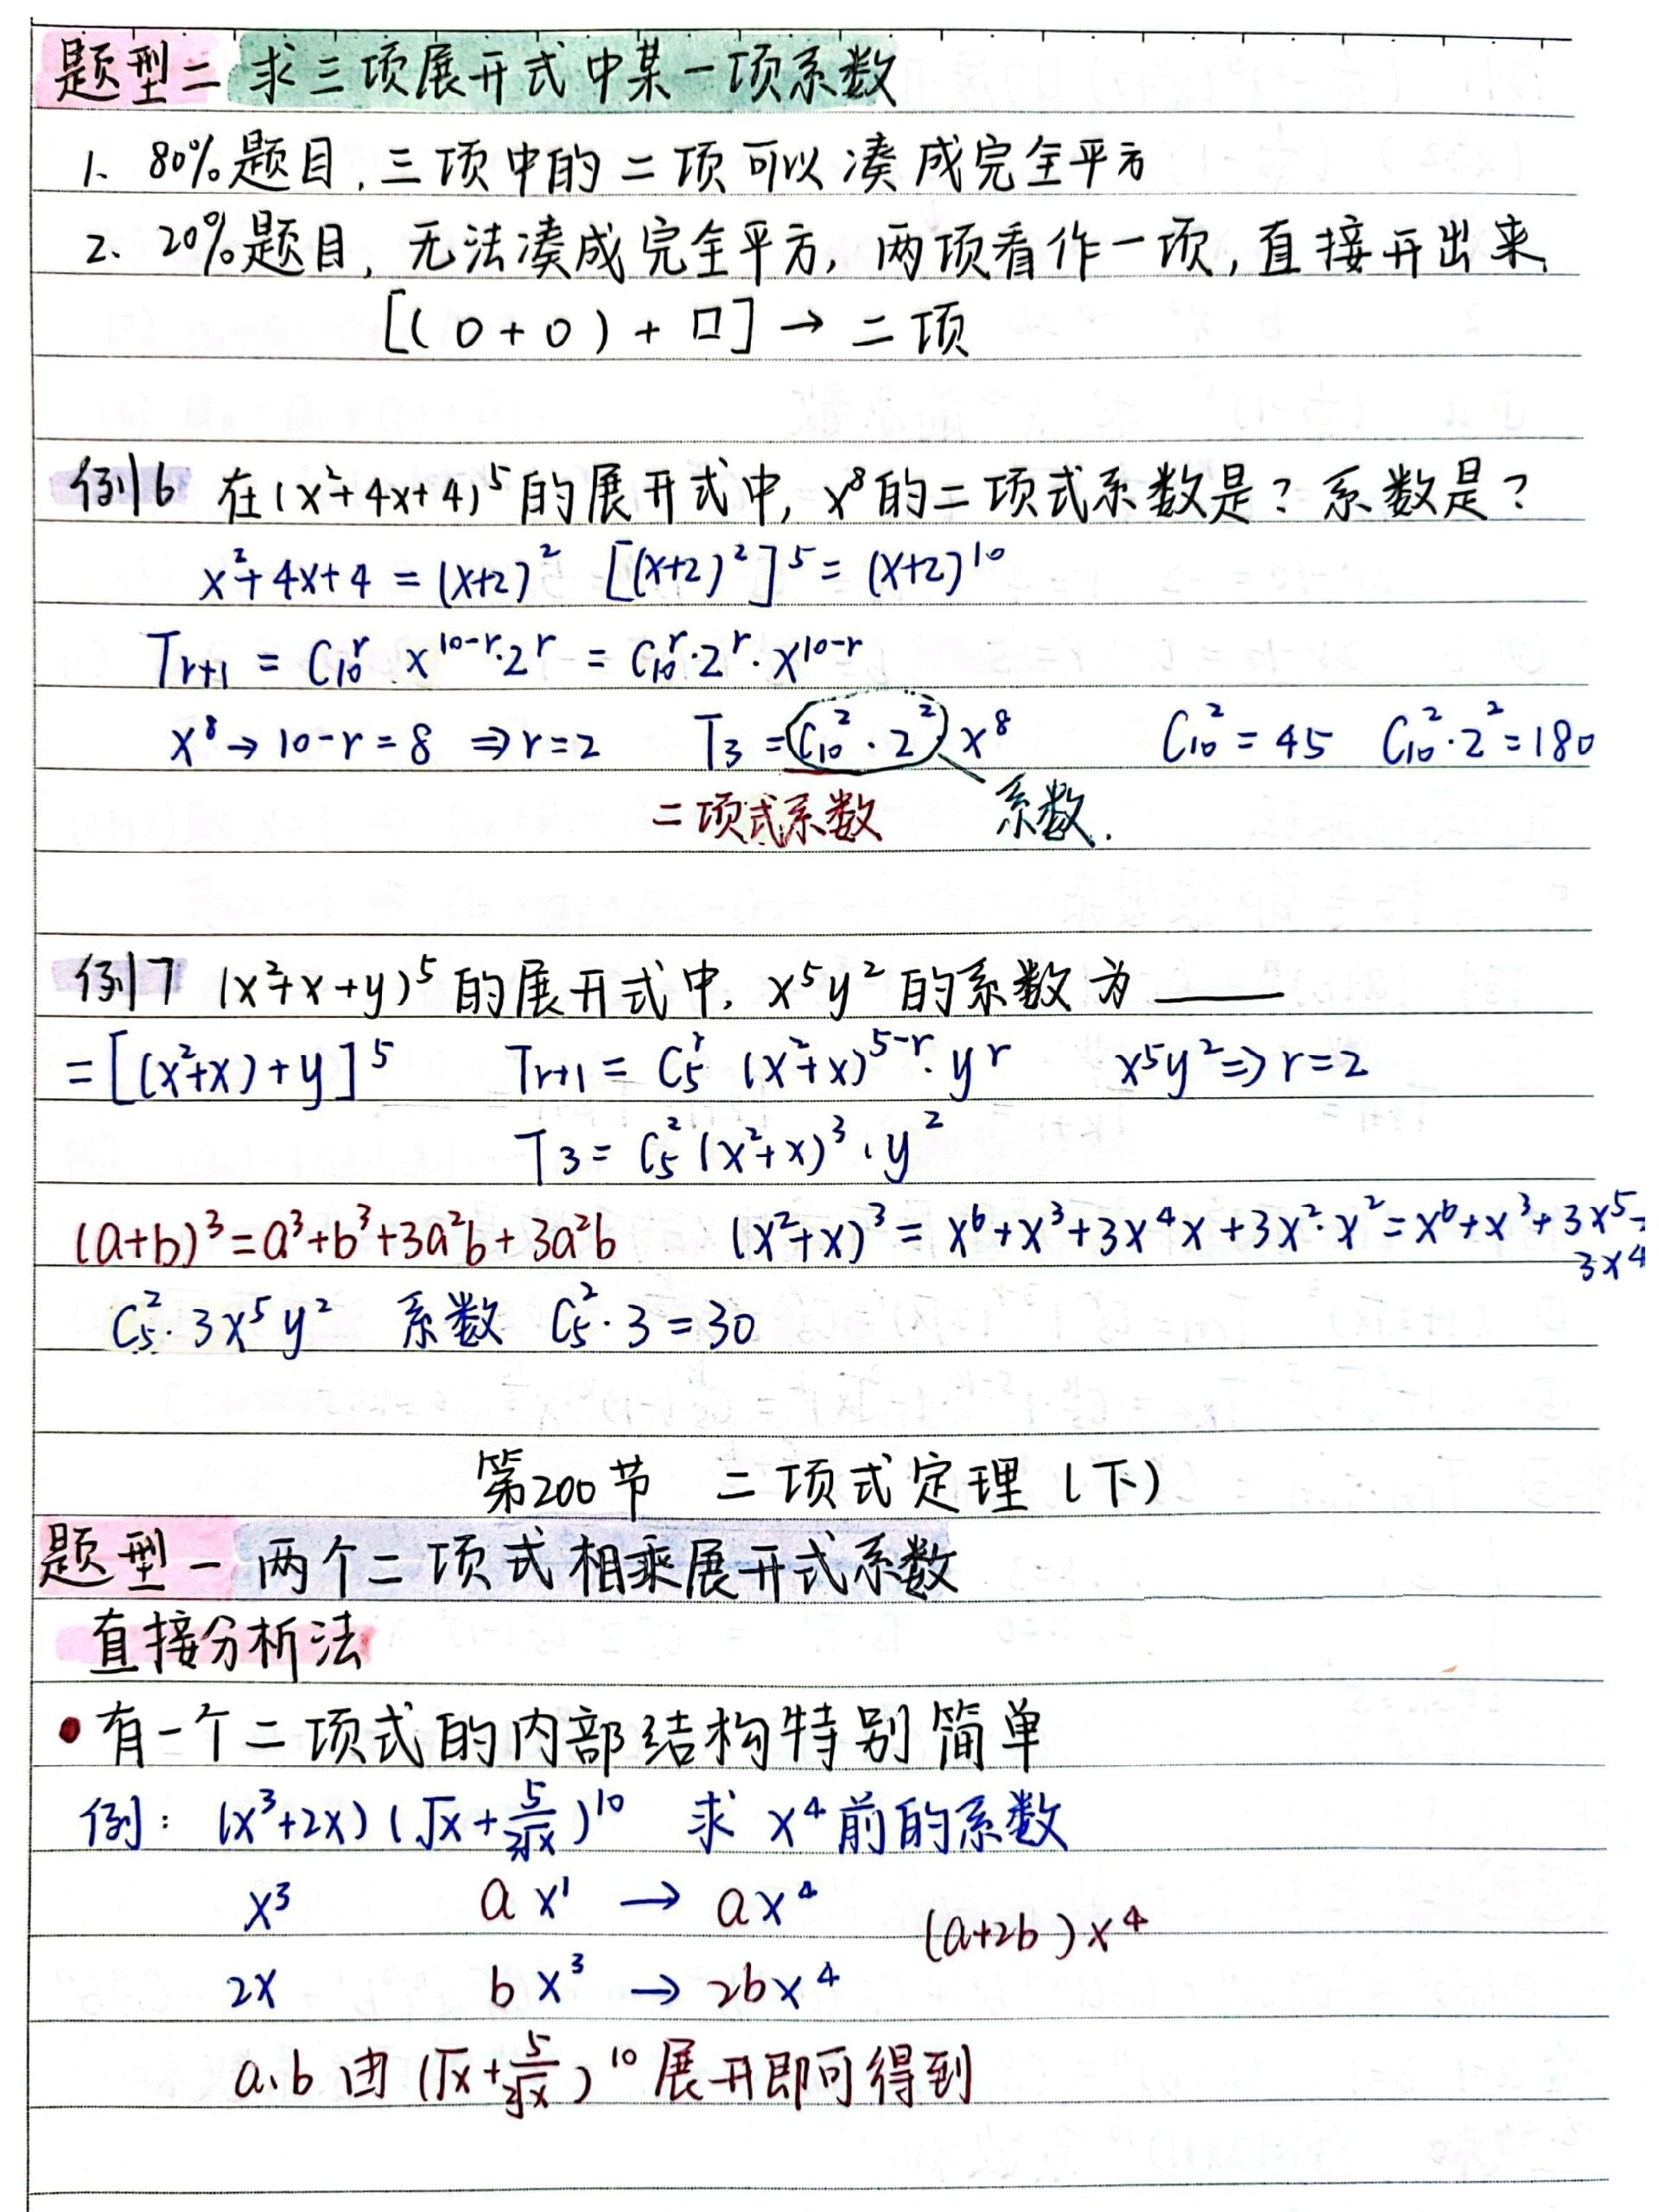 题型二 求三项展开式中某一项系数
1、80%题目,三项中的二项可以凑成完全平方
2、20%题目,无法凑成完全平方,两项看作一项,直接开出来
[(○+○)+□]→二项
例6 在(x²+4x+4)⁵的展开式中,x⁸的二项式系数是?系数是?
x²+4x+4=(x+2)² [(x+2)²]⁵=(x+2)¹⁰
Tr+1 = C₁₀ʳ·x¹⁰⁻ʳ·2ʳ = C₁₀ʳ·2ʳ·x¹⁰⁻ʳ
x⁸→10-r=8 ⇒r=2 T₃=C₁₀²·2² x⁸ C₁₀²=45 C₁₀²·2²=180
二项式系数 系数.
例7 (x²+x+y)⁵的展开式中,x⁵y²的系数为____
=[(x²+x)+y]⁵ Tr+1=C₅ʳ(x²+x)⁵⁻ʳ·yʳ x⁵y²⇒r=2
T₃=C₅²(x²+x)³·y²
(a+b)³=a³+b³+3a²b+3a²b (x²+x)³=x⁶+x³+3x⁴x+3x²·x²=x⁶+x³+3x⁵+
3x⁴
C₅²·3x⁵y² 系数 C₅²·3=30
第200节 二项式定理(下)
题型一 两个二项式相乘展开式系数
直接分析法
•有一个二项式的内部结构特别简单
例:(x³+2x)(√x+5/∛x)¹⁰ 求x⁴前的系数
x³ ax¹ → ax⁴
(a+2b)x⁴
2x bx³ → 2bx⁴
a、b由(√x+5/∛x)¹⁰展开即可得到